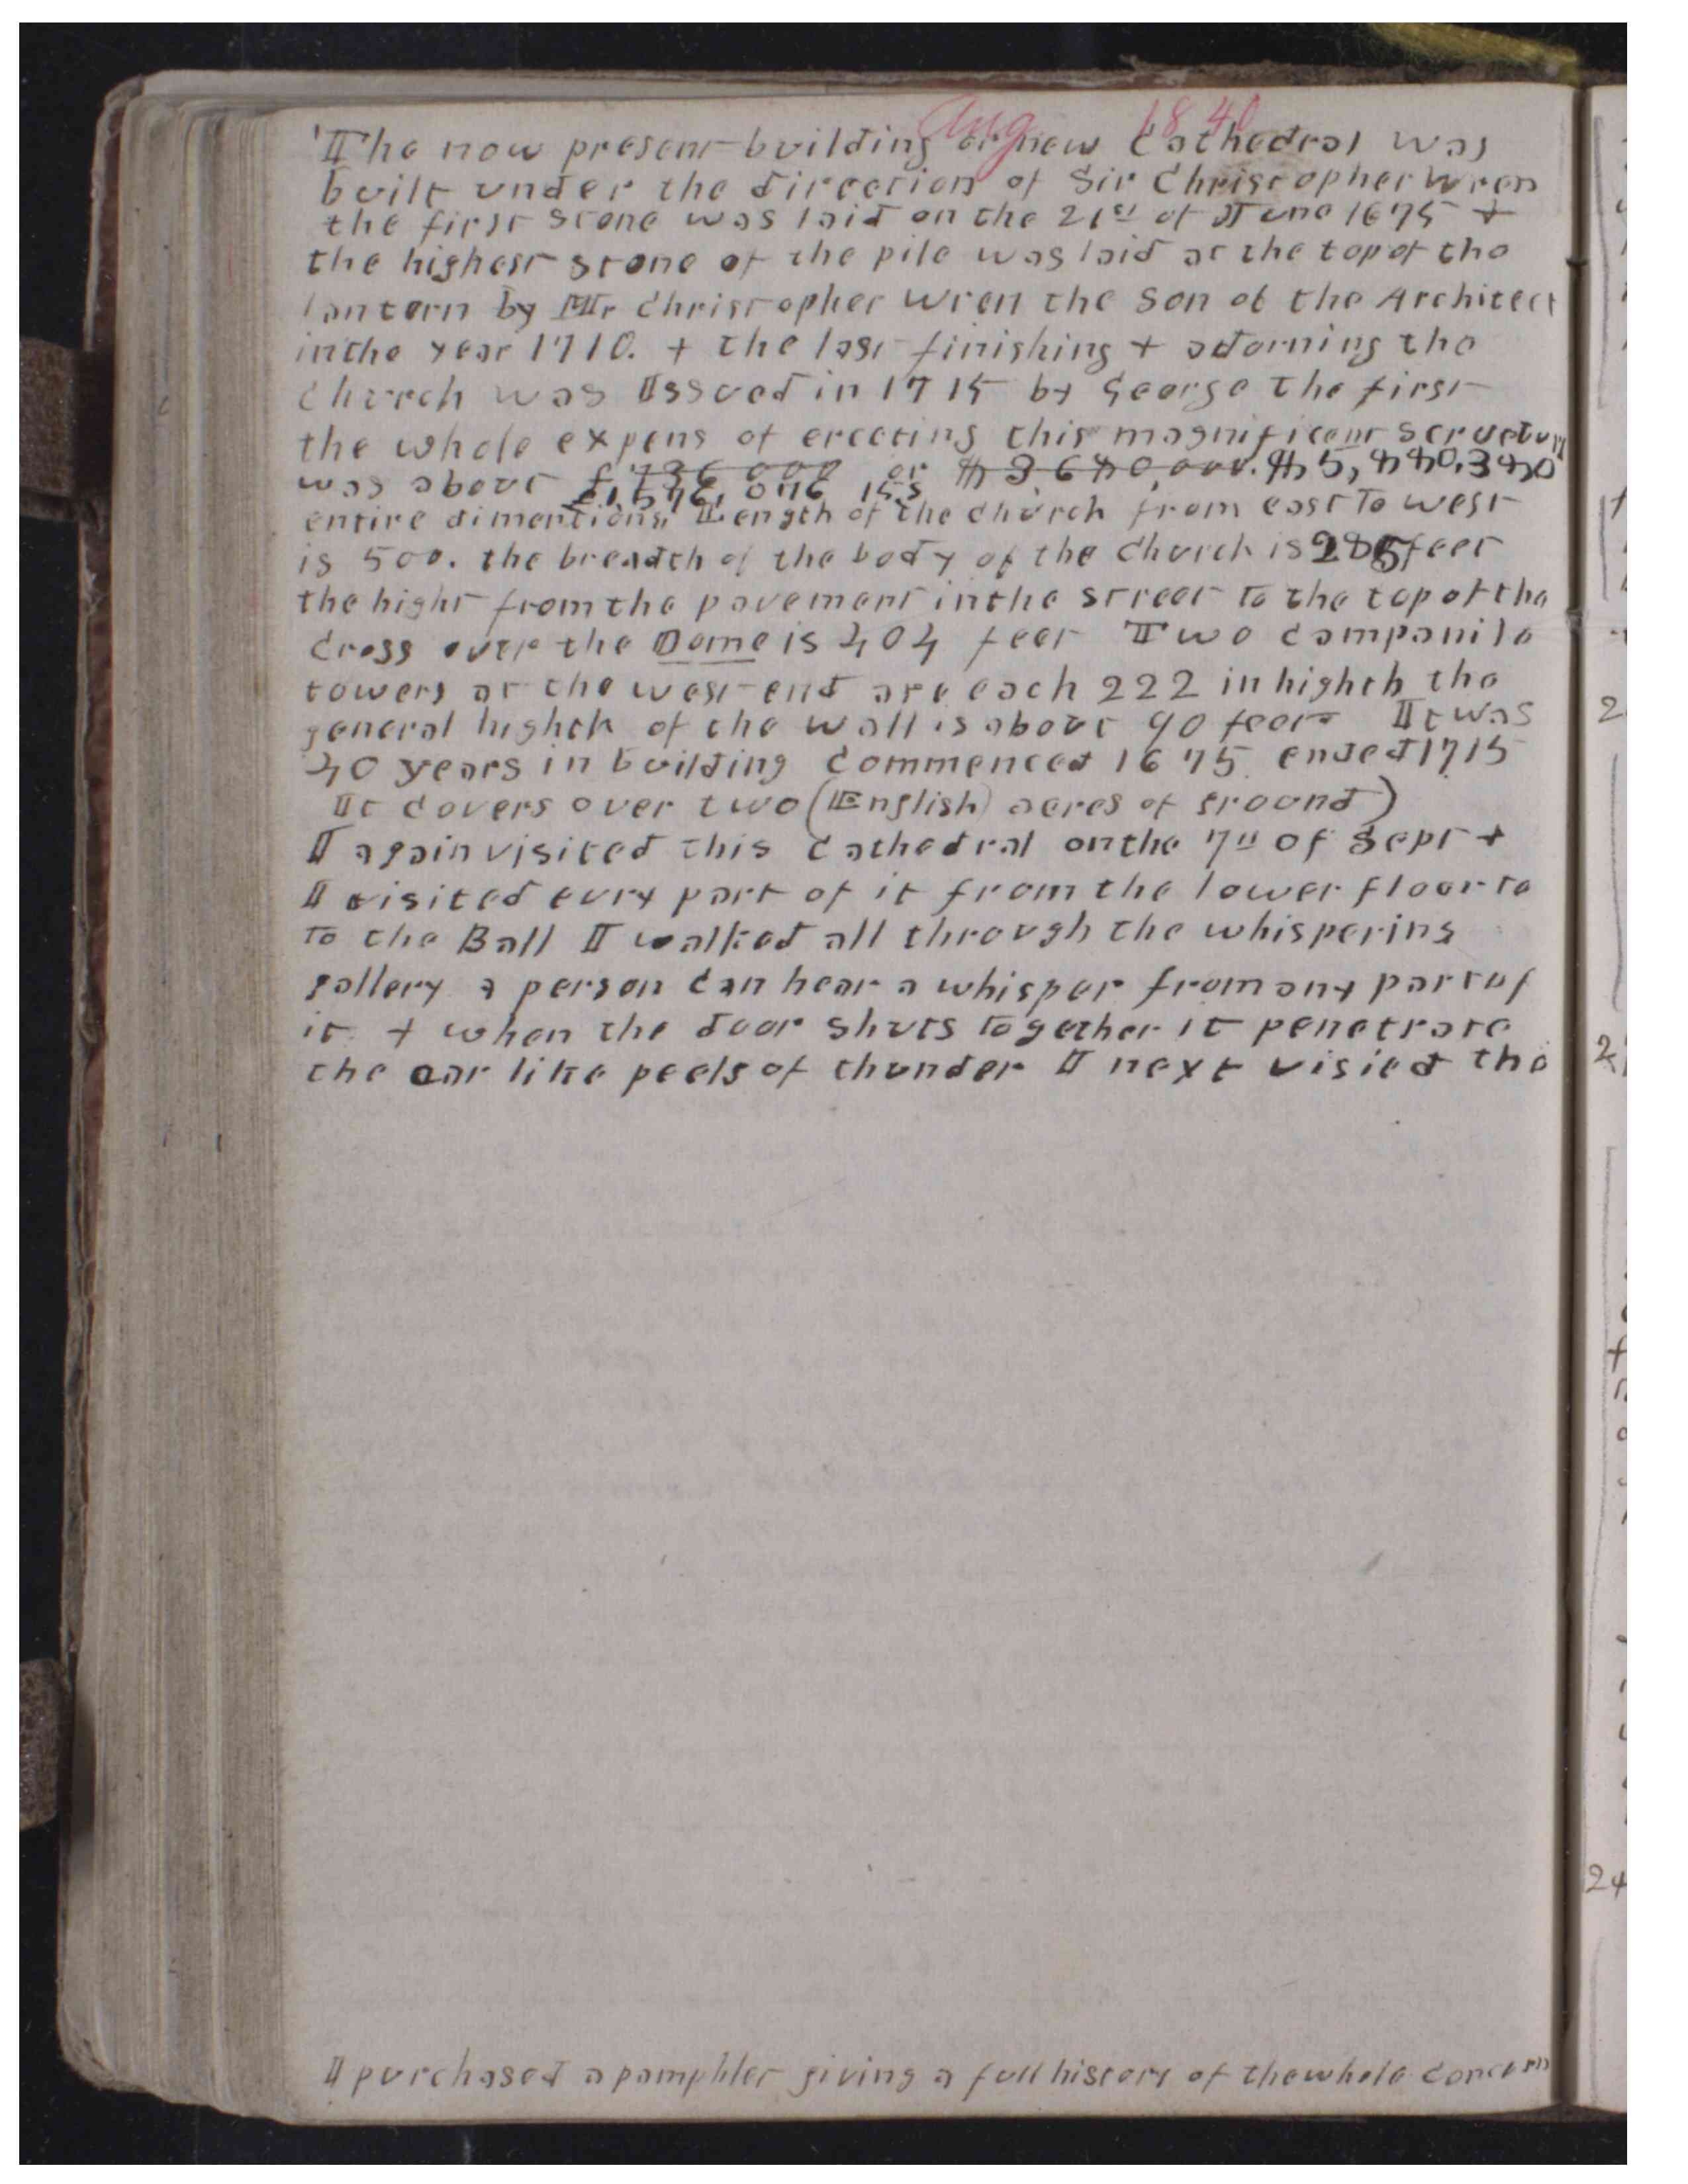 Aug 1840
The now present building or new Cathedral was
built under the direction of Sir Christopher Wren
the first stone was laid on the 21st of June 1675 +
the highest stone of the pile was laid at the top of the
lantern by Mr Christopher Wren the Son of the Architect
in the year 1710. + the last finishing + adorning the
Church was Issued in 1715 by George the first
the whole expens of erecting this magnificent
was above £736000 or $3680,000. $5,
entire dimentions, Length of the church from east to west
is 500. the breadth of the body of the Church is 285 feet
the hight from the pavement in the street to the top of the
Cross over the Dome is 404 feet Two Campanile
towers at the west end are each 222 in highth the
general highth of the wall is about 90 feet It was
40 years in building Commenced 1675 ended 1715
It Covers over two (English) acres of ground)
I again visited this Cathedral on the 7th of Sept +
I visited evry part of it from the lower floor to
to the Ball I walked all through the whispering
gallery a person Can hear a whisper from any part of
it + when the door shuts together it penetrate
the ear like peels of thunder I next visied the
I purchased a pamphlet giving a full history of the whole Concern